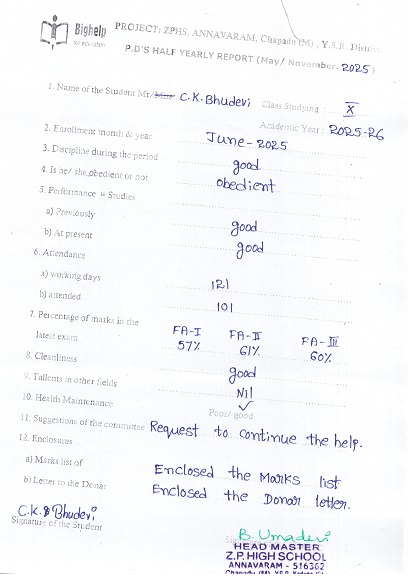 Bighelp
for education
PROJECT: ZPHS, ANNAVARAM, Chapadu (M), Y.S.R. District.
P.D'S HALF YEARLY REPORT (May/ November- 2025)
1. Name of the Student Mr/Miss C.K.Bhudevi Class Studying : X
Academic Year : 2025-26
2. Enrollment month & year June-2025
3. Discipline during the period good
4. Is he/ she obedient or not obedient
5. Performance in Studies
a) Previously good
b) At present good
6. Attendance
a) working days 121
b) attended 101
7. Percentage of marks in the FA-I FA-II FA-III
latest exam 57% 61% 60%
8. Cleanliness good
9. Tallents in other fields Nil
10. Health Maintenance ✓ Poor/ good
11. Suggestions of the committee Request to continue the help.
12. Enclosures
a) Marks list of Enclosed the Marks list
b) Letter to the Donar Enclosed the Donar letter.
C.K. Bhudevi
Signature of the Student
B. Umadevi
HEAD MASTER
Z.P. HIGH SCHOOL
ANNAVARAM - 516362